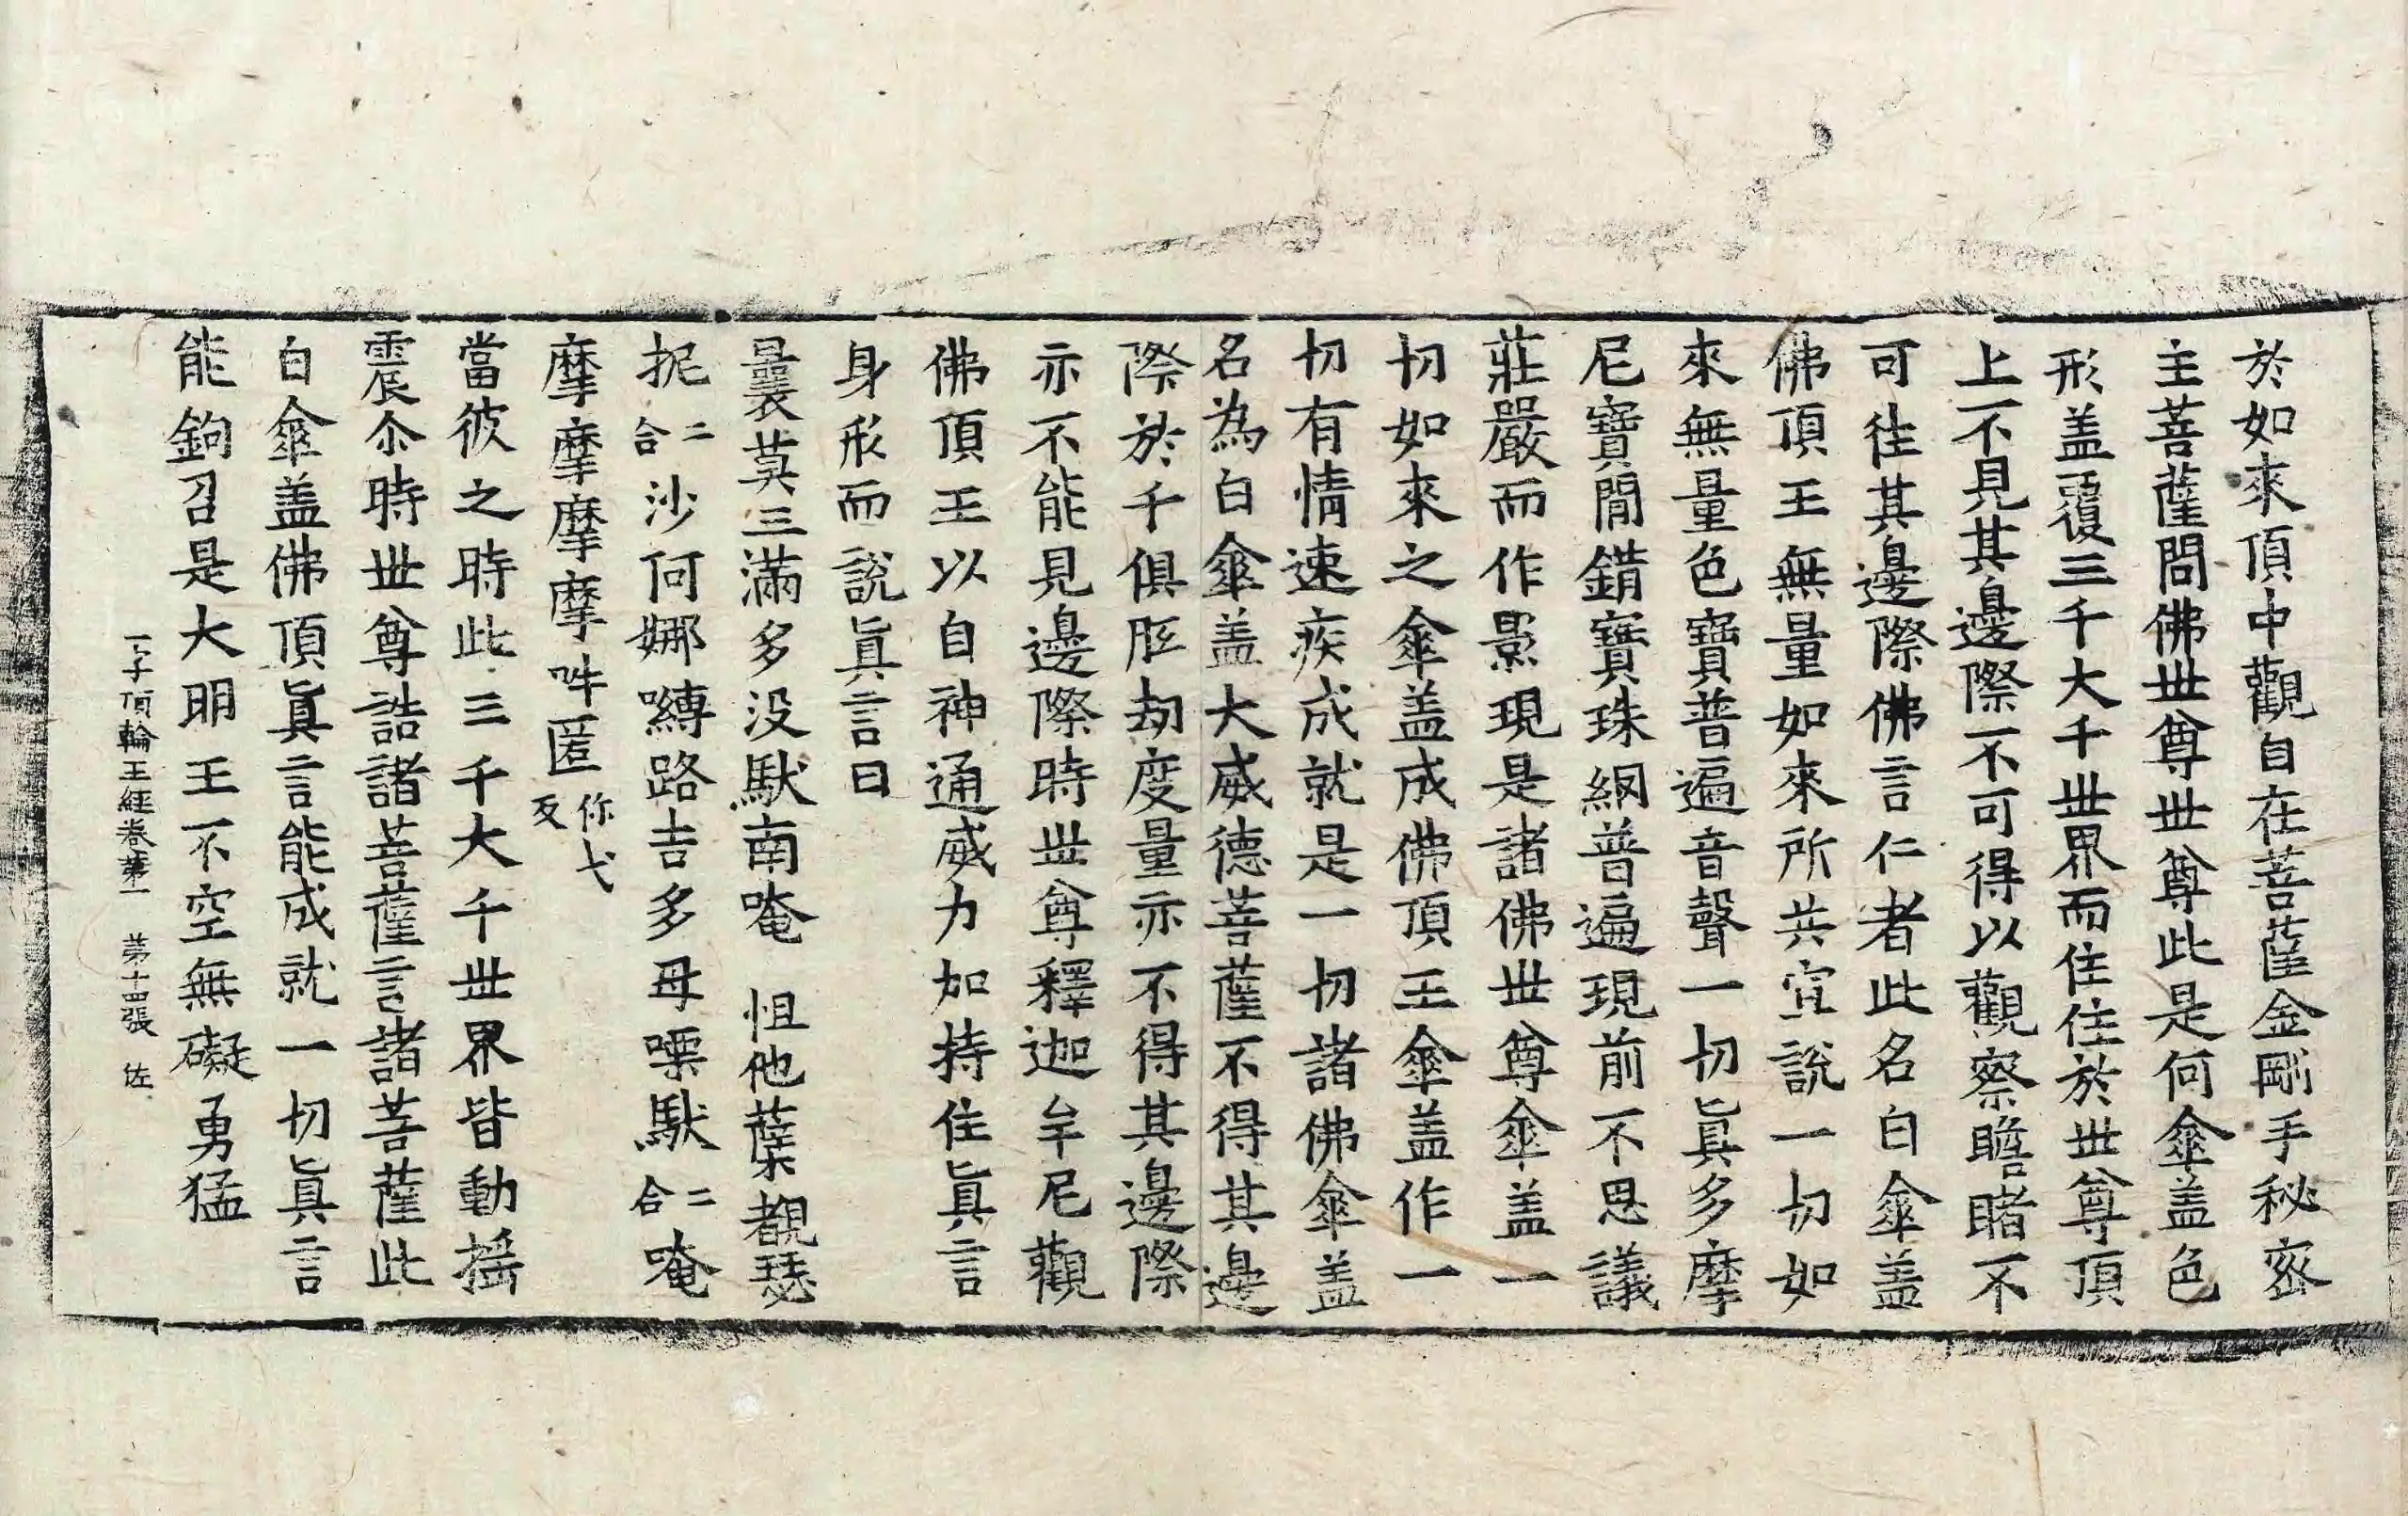 於如來頂中觀自在菩薩金剛手秘密
主菩薩問佛世尊世尊此是何傘盖色
形盖覆三千大千世界而住住於世尊頂
上不見其邊際不可得以觀察瞻睹不
可往其邊際佛言仁者此名白傘盖
佛頂王無量如來所共宣說一切如
來無量色寶普遍音聲一切眞多摩
尼寶閒錯寶珠網普遍現前不思議
莊嚴而作影現是諸佛世尊傘盖一
切如來之傘盖成佛頂王傘盖作一
切有情速疾成就是一切諸佛傘盖
名為白傘盖大威德菩薩不得其邊
際於千俱胝劫度量亦不得其邊際
亦不能見邊際時世尊釋迦牟尼觀
佛頂王以自神通威力加持住眞言
身形而說眞言曰
曩莫三滿多没馱南唵 怛他蘖覩瑟
抳二合沙何娜嚩路吉多母㗚馱二合唵
摩摩摩摩吽匿你弋反
當彼之時此三千大千世界皆動搖
震尒時世尊誥諸菩薩言諸菩薩此
白傘盖佛頂眞言能成就一切眞言
能鉤召是大明王不空無礙勇猛
一字頂輪王經卷苐一 苐十四張 佐